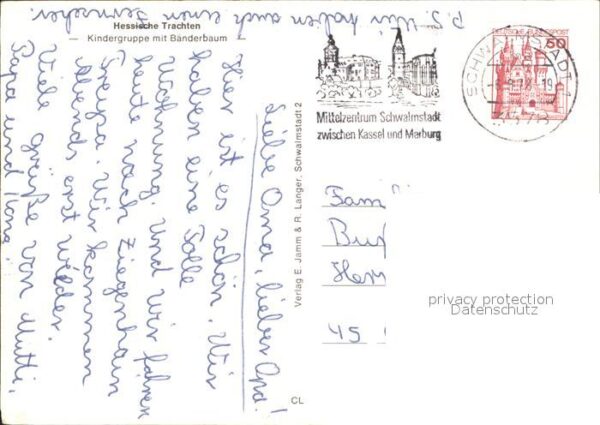 Hessische Trachten
Kindergruppe mit Bänderbaum
Liebe Oma, lieber Opa!
Hier ist es schön. Wir
haben eine tolle
Wohnung. Und wir fahren
heute nach Ziegenhain
Abends erst wieder.
Viele Grüße von Mutti,
Papa und
P.S. Wir haben auch einen Fernseher.
Verlag E. Jamm & R. Langer, Schwalmstadt 2
CL
Mittelzentrum Schwalmstadt
zwischen Kassel und Marburg
DEUTSCHE BUNDESPOST
50
SCHWALMSTADT
3578
Fam
45
privacy protection
Datenschutz